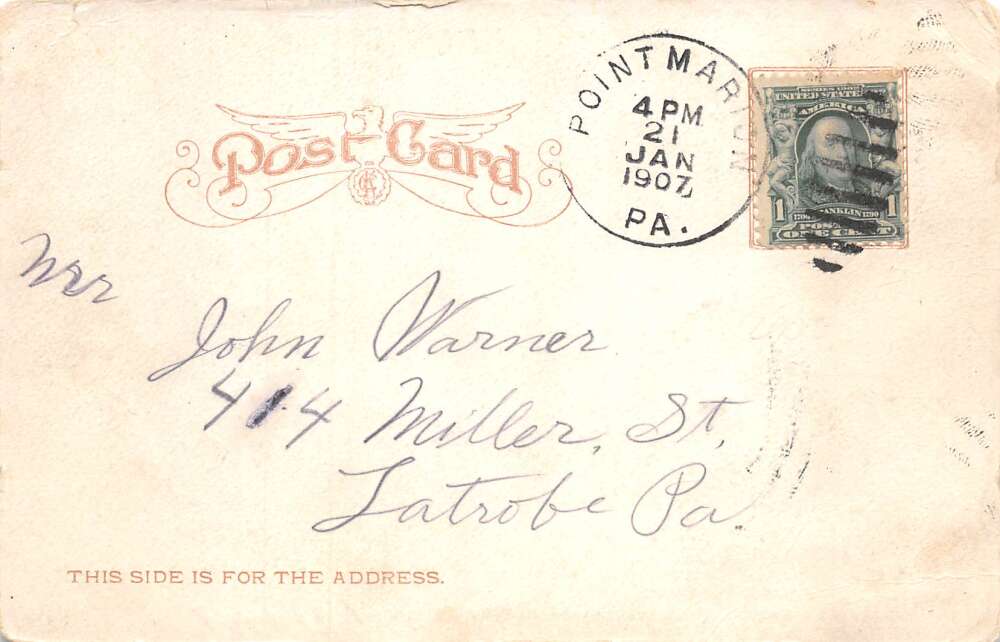 Post Card
POINT MARION
4 PM
21
JAN
1907
PA.
SERIES 1902
UNITED STATES
AMERICA
1 1706 FRANKLIN 1790 1
POSTAGE
ONE CENT
John Warner
414 Miller, St,
Latrobe Pa.
THIS SIDE IS FOR THE ADDRESS.